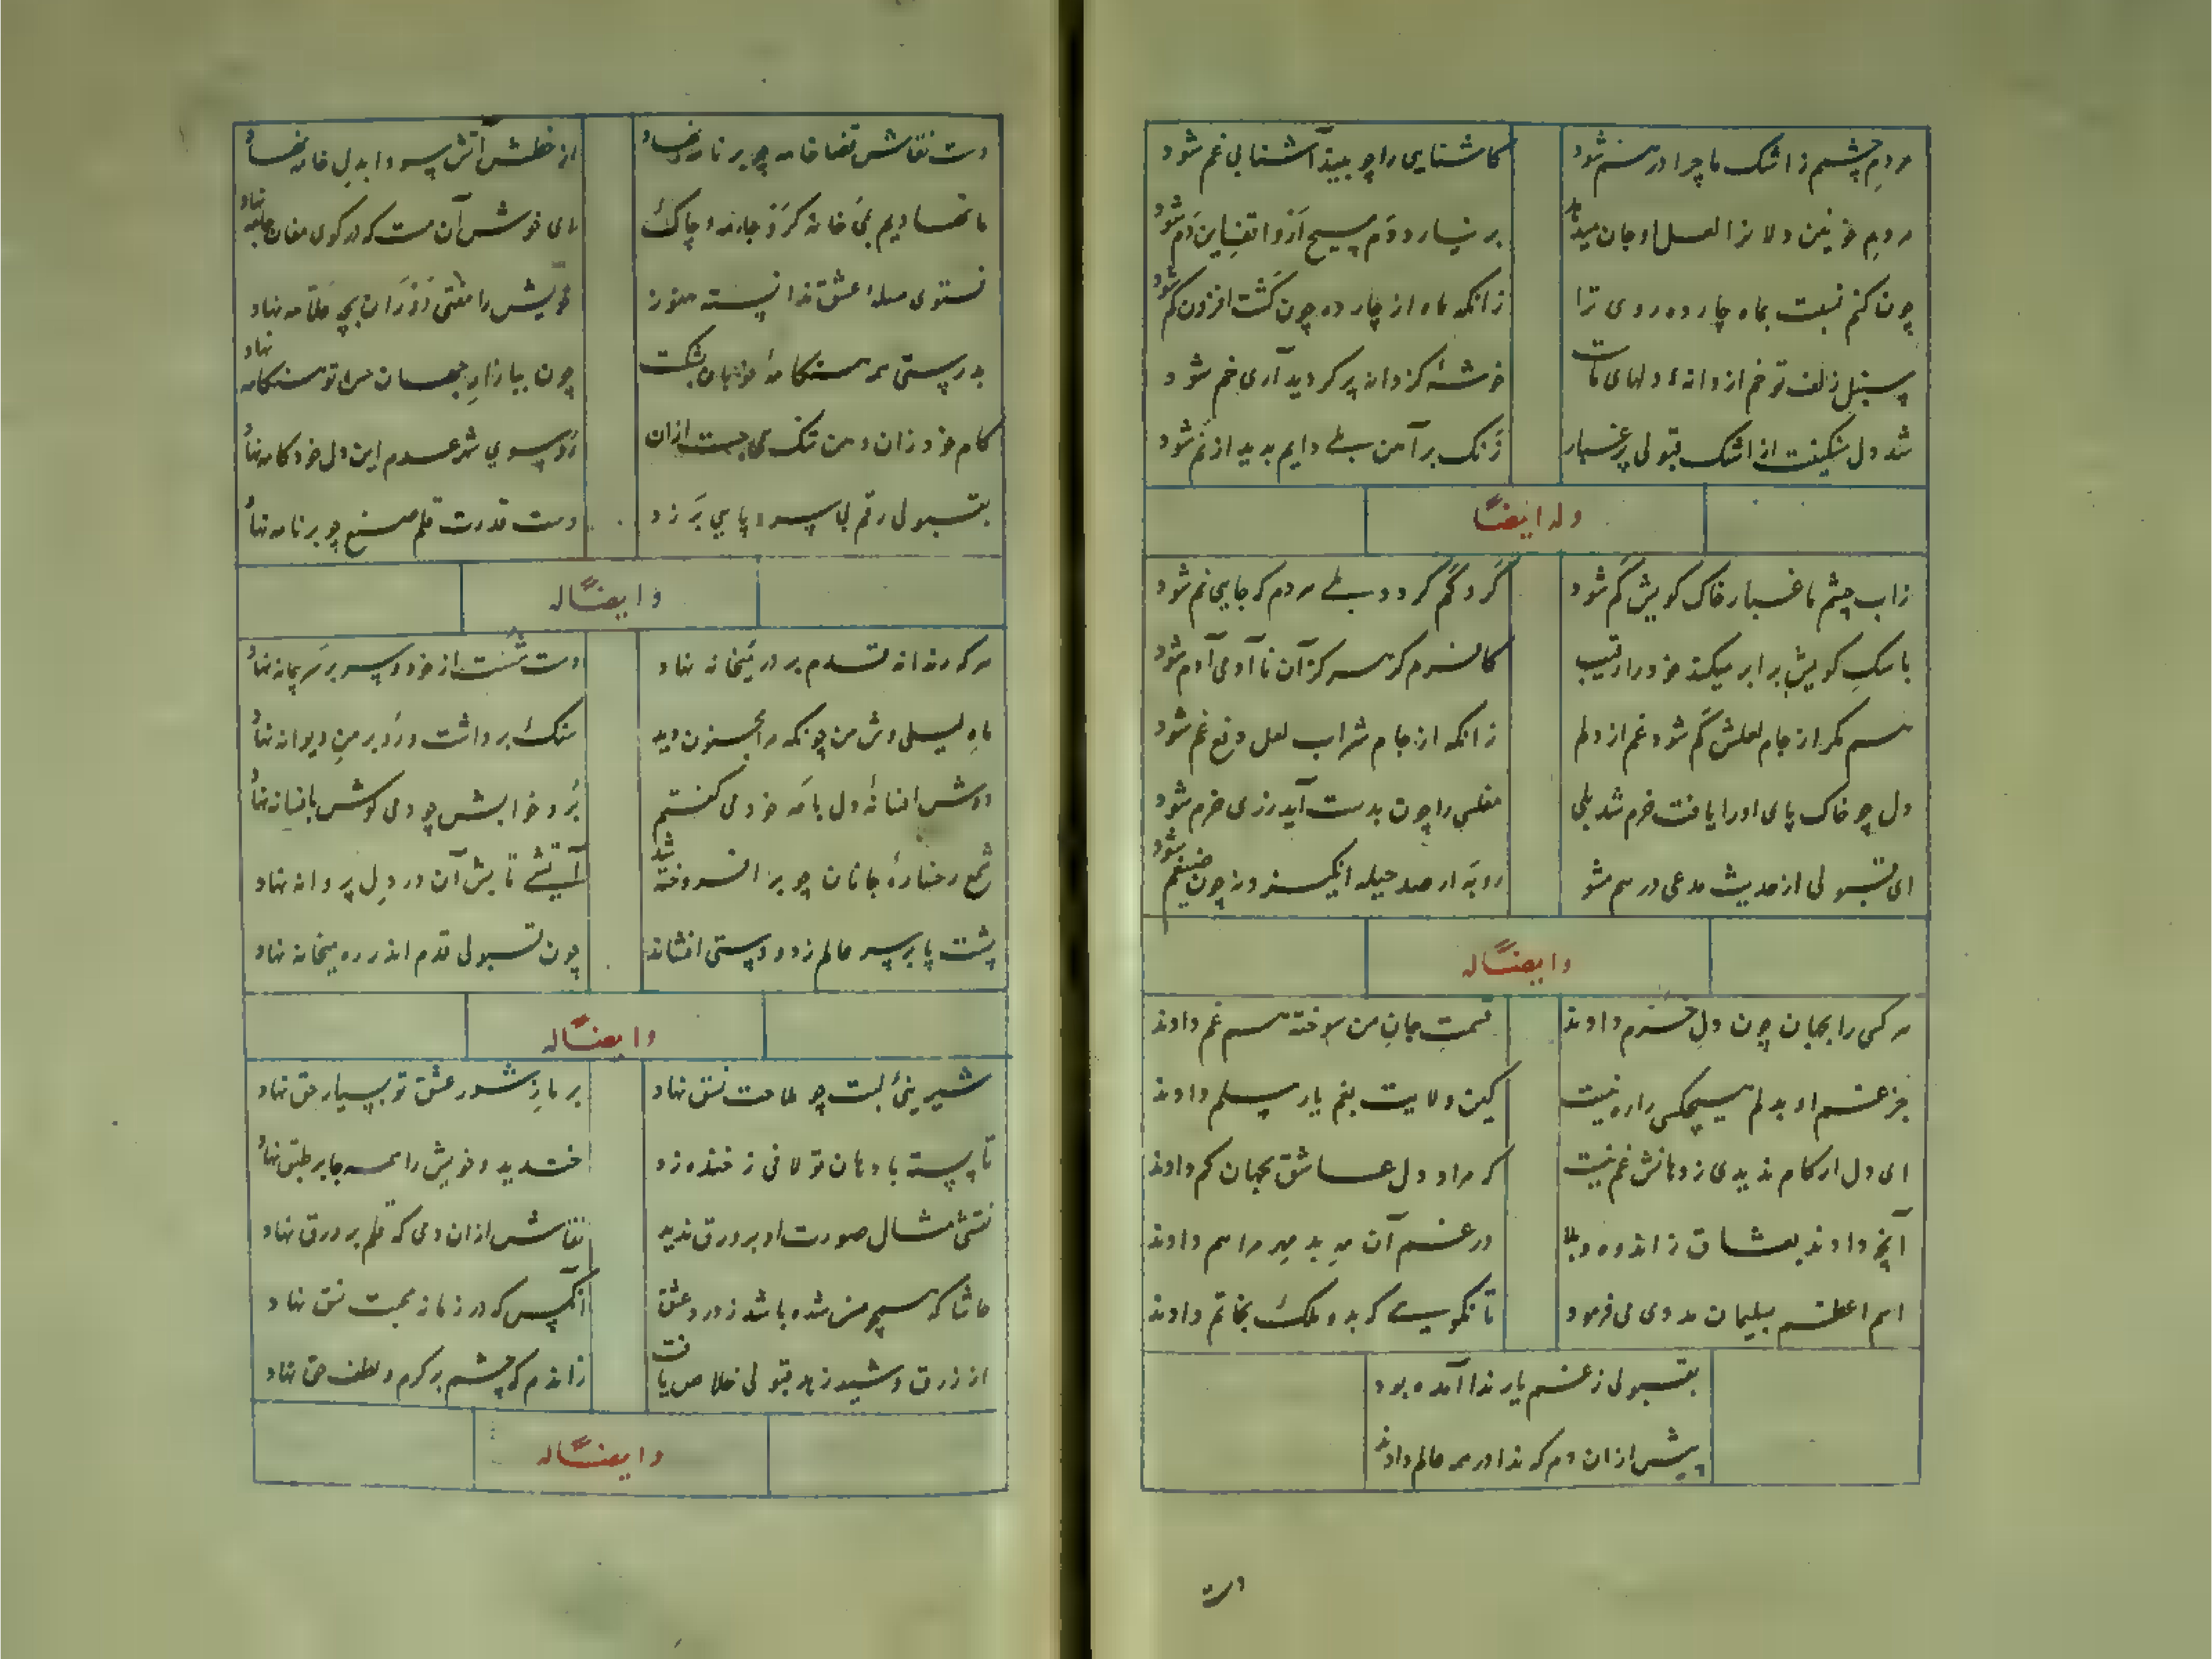 مردم چشمم ز اشک ما چرا در هم شود کاشنایی را چو بیند آشنا بی غم شود
مردم خونین دلا نرا لعل او جان میدهد بر نیارد دم مسیح ار واقف این دم شود
چون کنم نسبت بماه چارده روی ترا زانکه ماه از چارده چون گشت افزون کم شود
سنبل زلف تو خم از دانهٔ دلهای ماست خوشهٔ کز دانه پر گردید آری خم شود
شد دل سنگینت از اشک قبولی پر غبار زنگ بر آهن بلی دایم پدید از نم شود
وله ایضاً
زاب چشم ما غبار خاک کویش گم شود گرد گم گردد بلی مردم که جایی نم شود
با سگ کویش برابر میکند خود را رقیب کافرم گر هرگز آن نا آدمی آدم شود
هم مگر از جام لعلش گم شود غم از دلم زانکه از جام شراب لعل دفع غم شود
دل چو خاک پای او را یافت خرم شد بلی مفلسی را چون بدست آید زری خرم شود
ای قبولی از حدیث مدعی در هم مشو روبه ار صد حیله انگیزد نه چون ضیغم شود
وایضاً له
هر کسی را بجهان چون دل خرم دادند قسمت جان من سوخته هم غم دادند
جز غم او بدلم هیچکسی را ره نیست کین ولایت بغم یار مسلم دادند
ای دل ار کام ندیدی ز دهانش غم نیست که مراد دل عاشق بجهان کم دادند
آنچه دادند بعشاق ز اندوه و بلا در غم آن مه بد مهر مرا هم دادند
اسم اعظم بسلیمان مددی می فرمود تا نگویی که بدو ملک بخاتم دادند
بقبولی ز غم یار ندا آمده بود
پیش از ان دم که ندا در همه عالم دادند
دست
دست نقاش قضا خامه چو بر نامه نهاد از خطش آتش سودا بدل خامه نهاد
ما نهادیم بمی خانه گرو جامه و چاک ای خوش آن مست که در کوی مغان جامه نهاد
نستوی مسلهٔ عشق ندانسته هنوز خویش را مفتی دوران بچه علامه نهاد
بدرستی همه هنگامهٔ خوبان بشکست چون ببازار جهان حسن تو هنگامه نهاد
کام خود زان دهن تنگ همی جست ازان رو بسوی شهر عدم این دل خود کامه نهاد
بقبولی رقم بی سر و پایی بر زد دست قدرت قلم صنع چو بر نامه نهاد
وایضاً له
هر که رندانه قدم بر در میخانه نهاد دست شست از خود و سر بر سر پیمانه نهاد
ماه لیلی وش من چونکه مرا مجنون دید سنگ برداشت و رو بر من دیوانه نهاد
دوش افسانهٔ دل با مه خود می گفتم برد خوابش چو دمی گوش بافسانه نهاد
شمع رخسارهٔ جانان چو بر افروخته شد آتشی تابش آن در دل پروانه نهاد
پشت پا بر سر عالم زد و دستی افشاند چون قبولی قدم اندر ره میخانه نهاد
وایضاً له
شیرینیٔ لبت چو ملاحت نسق نهاد بر ما ز شور عشق تو بسیار حق نهاد
تا پسته با دهان تو لافی ز خنده زد خندید و خویش را همه جا بر طبق نهاد
نقشی مثال صورت او بر ورق ندید نقاش ازان دمی که قلم بر ورق نهاد
حاشا که هیچ من شده باشد ز درد عشق آنکس که در زمانه محبت نسق نهاد
از زرق و شید زهد قبولی خلاص یافت زاندم که چشم بر کرم و لطف حق نهاد
وایضاً له